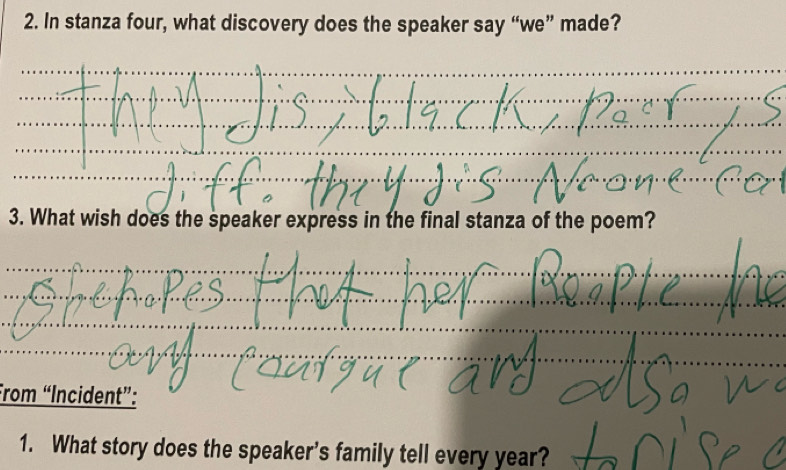 2. In stanza four, what discovery does the speaker say “we” made?
they dis, black, poor, s
diff. they dis Noone ca
3. What wish does the speaker express in the final stanza of the poem?
She hopes that her People ha
and courgue and also w
From “Incident”:
1. What story does the speaker’s family tell every year?
to rise